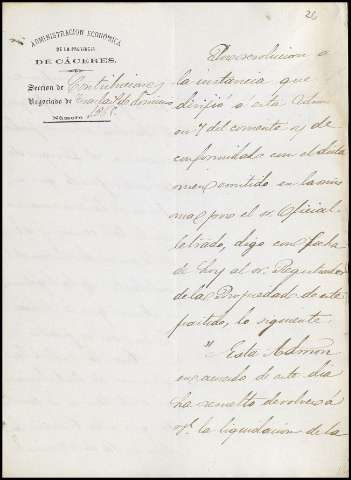 26
ADMINISTRACION ECONÓMICA
DE LA PROVINCIA
DE CÁCERES.
Seccion de Contribuciones y
Negociado de Trasl. de dominio
Número
En resolucion a
la instancia que
dirigió á esta Admon
en 7 del corriente y de
conformidad con el dicta
men emitido en la mis
ma por el Sr. Oficial
letrado, digo con fecha
de hoy al Sr. Registrador
de la Propiedad de este
partido, lo siguiente.
"Esta Admon
en acuerdo de este dia
ha resuelto devolver á
V. la liquidacion de la